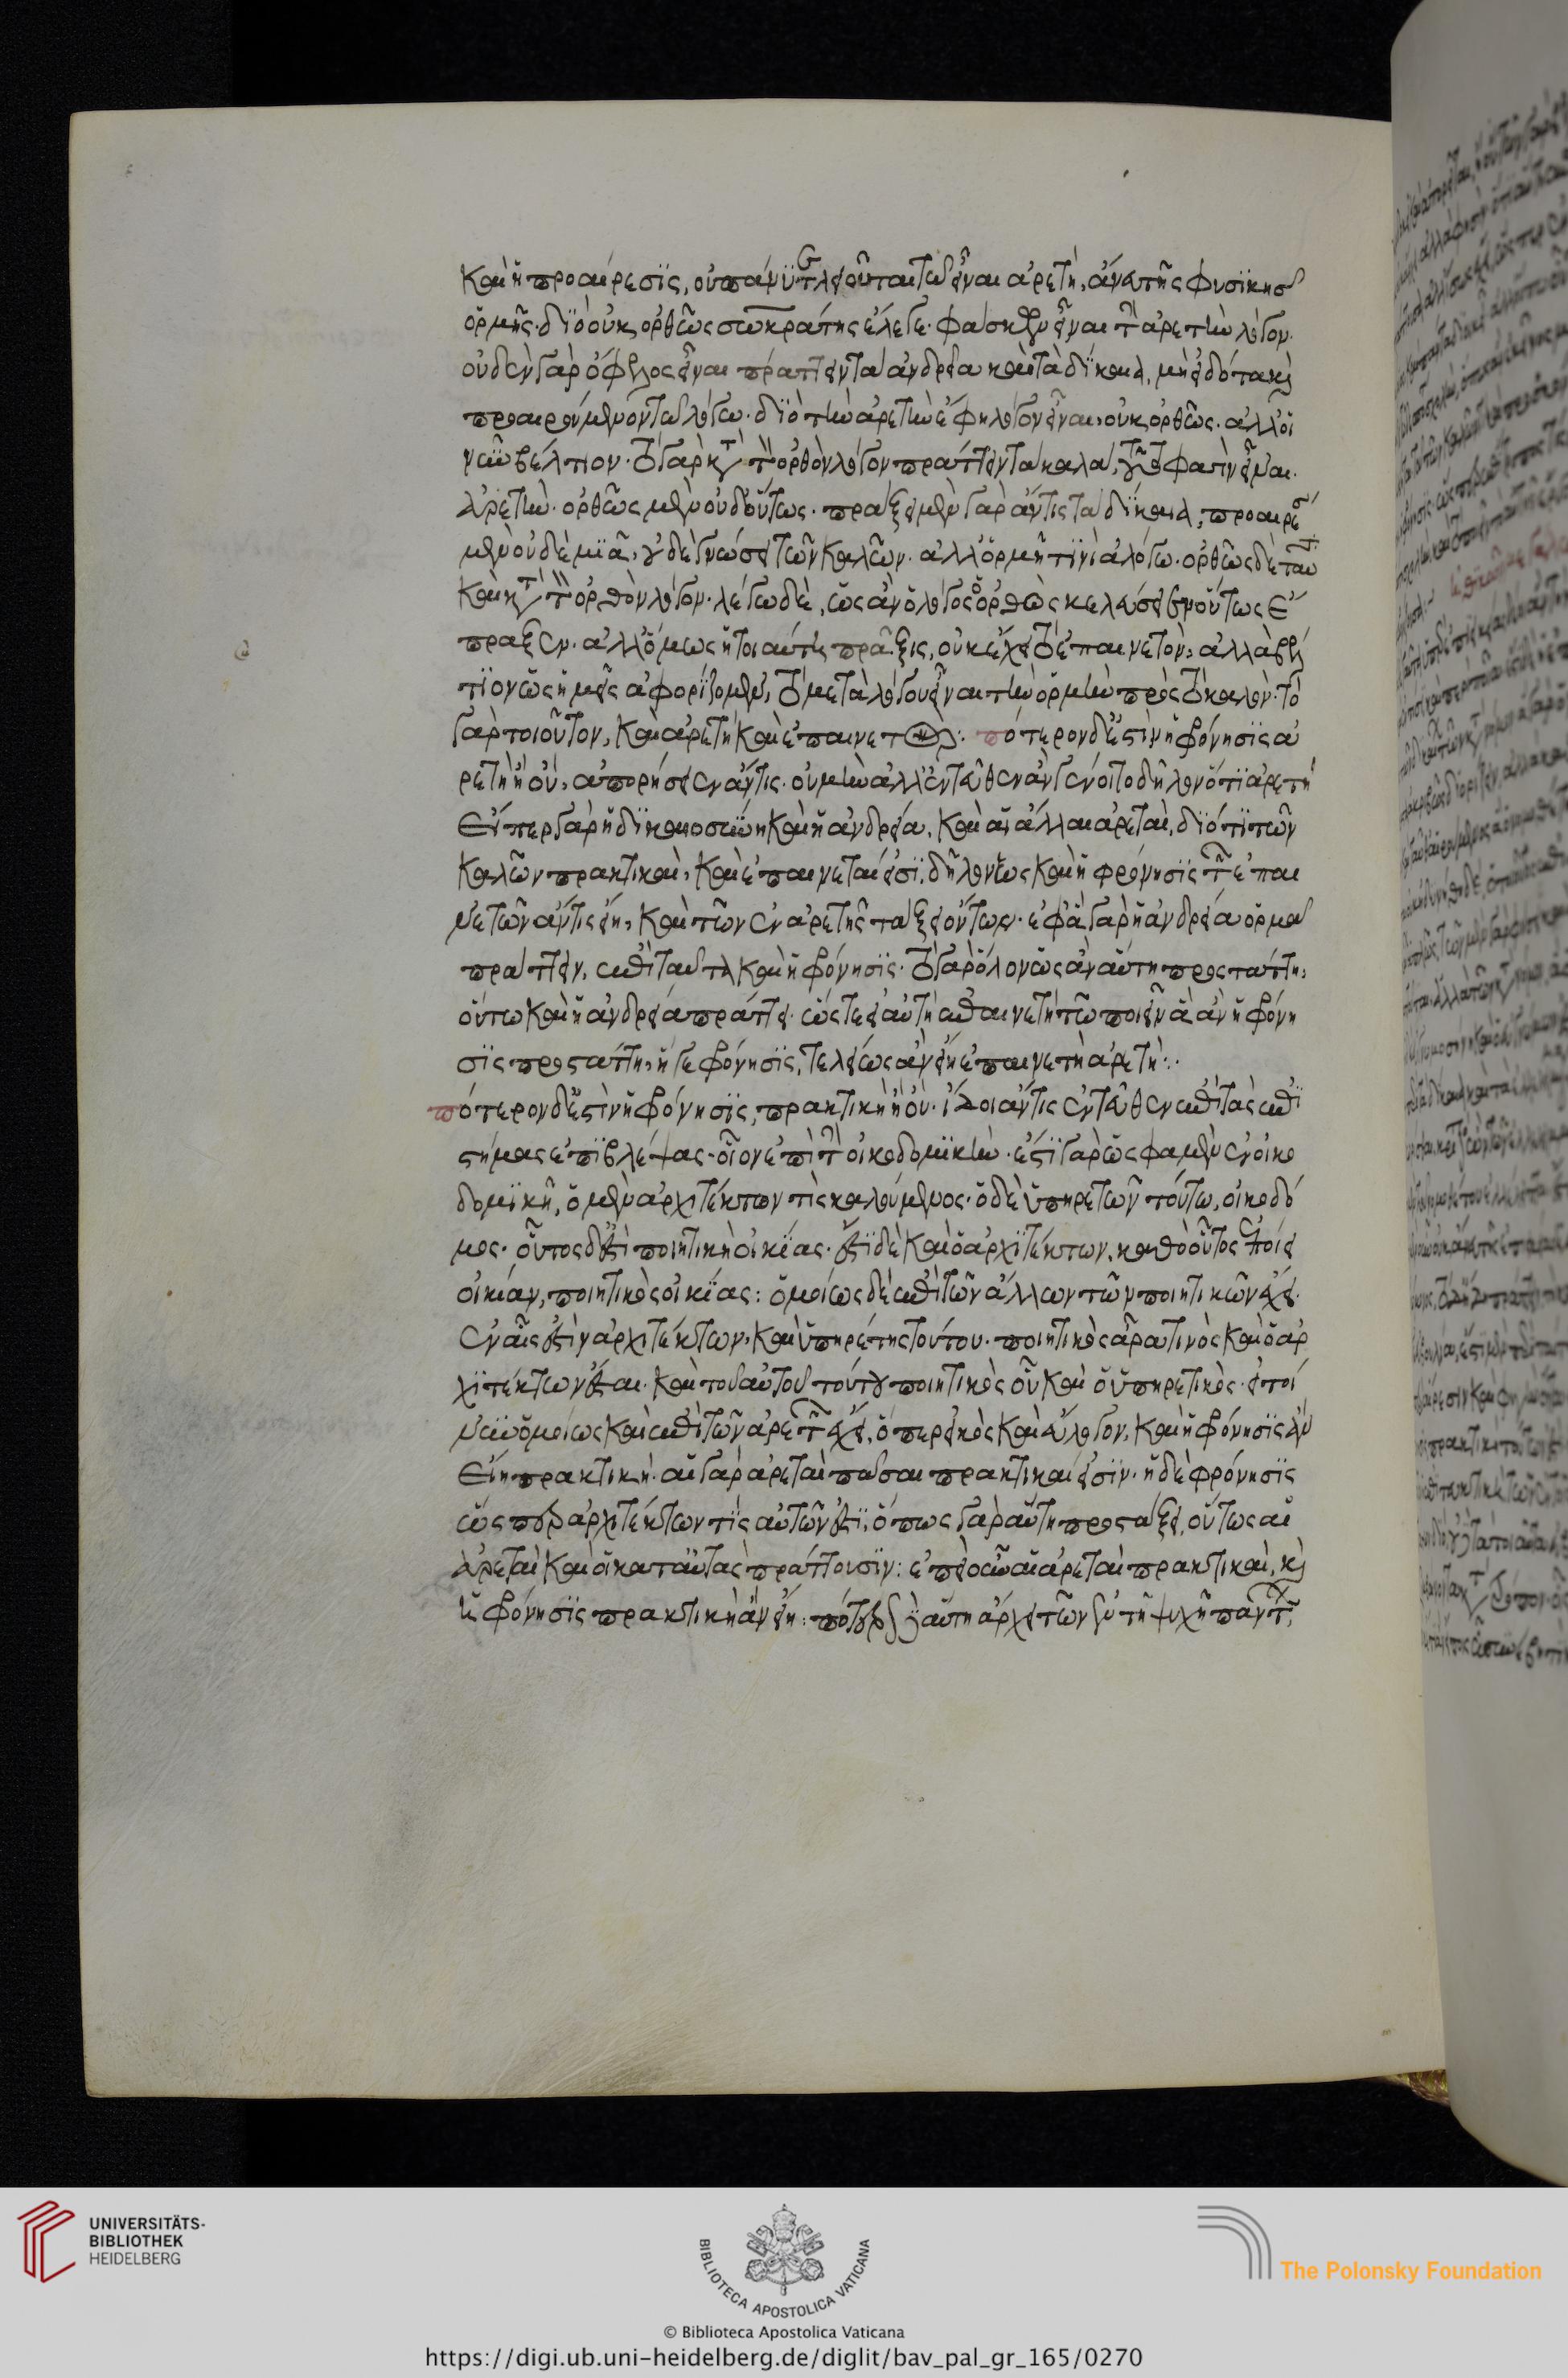 καὶ ἡ προαίρεσις, οὐ πάνυ τελειοῦται τῶ εἶναι ἀρετὴ, ἄνευ τῆς φυσικῆς
ὁρμῆς. διὸ οὐκ ὀρθῶς σωκράτης ἔλεγε. φάσκων εἶναι τὴν ἀρετὴν λόγον.
οὐδὲν γὰρ ὄφελος εἶναι πράττειν τὰ ἀνδρεῖα καὶ τὰ δίκαια, μὴ εἰδότα καὶ
προαιρούμενον τῶ λόγω. διὸ τὴν ἀρετὴν ἔφη λόγον εἶναι, οὐκ ὀρθῶς. ἀλλ' οἱ
νῦν βέλτιον. τὸ γὰρ κατὰ τὸν ὀρθὸν λόγον πράττειν τὰ καλά, τοῦτό φασιν εἶναι
ἀρετήν. ὀρθῶς μὲν οὐδ' οὕτως. πράξει μὲν γὰρ ἄν τις τὰ δίκαια, προαιρέσει
μὲν οὐδὲ μιᾶ, οὐδὲ γνώσει τῶν καλῶν. ἀλλ' ὁρμῆ τινὶ ἀλόγω. ὀρθῶς δὲ ταῦτα
καὶ κατὰ τὸν ὀρθὸν λόγον. λέγω δὲ, ὡς ἂν ὁ λόγος ὁ ὀρθὸς κελεύσειεν οὕτως ἔ
πραξεν. ἀλλ' ὅμως ἡ τοιαύτη πρᾶξις, οὐκ ἔχει τὸ ἐπαινετόν, ἀλλὰ βέλ
τιον ὡς ἡμεῖς ἀφορίζομεν, τὸ μετὰ λόγου εἶναι τὴν ὁρμὴν πρὸς τὸ καλόν. τὸ
γὰρ τοιοῦτον, καὶ ἀρετὴ καὶ ἐπαινετόν: πότερον δ' ἐστὶν ἡ φρόνησις ἀ
ρετὴ ἢ οὔ, ἀπορήσειεν ἄν τις. οὐ μὴν ἀλλ' ἐντεῦθεν ἂν γένοιτο δῆλον ὅτι ἀρετή
Εἴπερ γὰρ ἡ δικαιοσύνη καὶ ἡ ἀνδρεία, καὶ αἱ ἄλλαι ἀρεταὶ, διότι τῶν
καλῶν πρακτικαὶ, καὶ ἐπαινεταί εἰσι, δῆλον ὡς καὶ ἡ φρόνησις τῶν ἐπαι
νετῶν ἄν τις εἴη, καὶ τῶν ἐν ἀρετῆς τάξει ὄντων. ἐφ' ἃ γὰρ ἡ ἀνδρεία ὁρμᾶ
πράττειν, ἐπὶ ταῦτα καὶ ἡ φρόνησις. τὸ γὰρ ὅλον ὡς ἂν αὕτη προςτάττη,
οὕτω καὶ ἡ ἀνδρεία πράττει. ὥςτε εἰ αὐτὴ ἐπαινετὴ τῶ ποιεῖν ἃ ἂν ἡ φρόνη
σις προςτάττη, ἥ γε φρόνησις, τελείως ἂν εἴη ἐπαινετὴ ἀρετή:.
πότερον δ' ἐστὶν ἡ φρόνησις, πρακτικὴ ἢ οὔ. ἴδοι ἄν τις ἐντεῦθεν ἐπὶ τὰς ἐπι
στήμας ἐπιβλέψας. οἷον ἐπὶ τὴν οἰκοδομικήν. ἔστι γὰρ ὡς φαμὲν ἐν οἰκο
δομικῆ, ὁ μὲν ἀρχιτέκτων τις καλούμενος. ὁ δὲ ὑπηρετῶν τούτω, οἰκοδό
μος. οὗτος δ' ἐστὶ ποιητικὴ οἰκίας. ἔστι δὲ καὶ ὁ ἀρχιτέκτων, καθὸ οὗτος ἐποίει
οἰκίαν, ποιητικὸς οἰκίας: ὁμοίως δὲ ἐπὶ τῶν ἄλλων τῶν ποιητικῶν ἔχει.
ἐν αἷς ἐστὶν ἀρχιτέκτων, καὶ ὑπηρέτης τούτου. ποιητικὸς ἄρα τινὸς καὶ ὁ ἀρ
χιτέκτων ἔσται. καὶ τοῦ αὐτοῦ τούτου ποιητικὸς οὗ καὶ ὁ ὑπηρετικὸς. εἰ τοί
νυν ὁμοίως καὶ ἐπὶ τῶν ἀρετῶν ἔχει, ὅπερ εἰκὸς καὶ εὔλογον, καὶ ἡ φρόνησις ἂν
Εἴη πρακτική. αἱ γὰρ ἀρεταὶ πᾶσαι πρακτικαί εἰσιν. ἡ δὲ φρόνησις
ὥςπερ ἀρχιτέκτων τις αὐτῶν ἐστι, ὅπως γὰρ αὕτη προςτάξει, οὕτως αἱ
ἀρεταὶ καὶ οἱ κατ' αὐτὰς πράττουσιν: ἐπεὶ οὖν αἱ ἀρεταὶ πρακτικαὶ, καὶ
ἡ φρόνησις πρακτικὴ ἂν εἴη: πότερον δὲ αὕτη ἄρχει τῶν ἐν τῆ ψυχῆ πάντων,
UNIVERSITÄTS-
BIBLIOTHEK
HEIDELBERG
BIBLIOTECA APOSTOLICA VATICANA
The Polonsky Foundation
© Biblioteca Apostolica Vaticana
https://digi.ub.uni-heidelberg.de/diglit/bav_pal_gr_165/0270